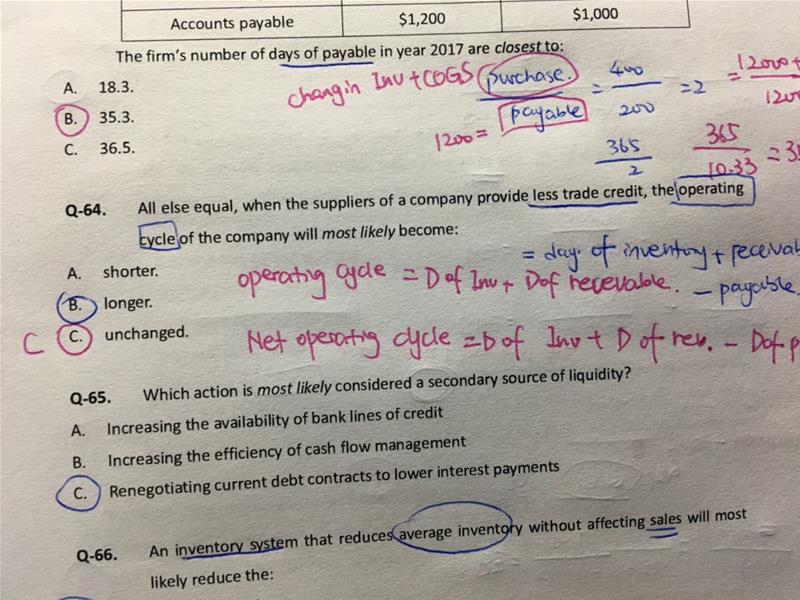 Accounts payable $1,200 $1,000
The firm's number of days of payable in year 2017 are closest to:
A. 18.3.
B. 35.3.
C. 36.5.
changin Inv + COGS purchase. = 400 / 200 = 2 = 12000+
1200 = payable
365 / 2
365 / 10.33 = 35
Q-64. All else equal, when the suppliers of a company provide less trade credit, the operating
cycle of the company will most likely become:
= day. of inventory + receival
A. shorter.
operating cycle = D of Inv + D of recevable. - payable.
B. longer.
C C. unchanged.
Net operatig cycle = D of Inv + D of rev. - D of p
Q-65. Which action is most likely considered a secondary source of liquidity?
A. Increasing the availability of bank lines of credit
B. Increasing the efficiency of cash flow management
C. Renegotiating current debt contracts to lower interest payments
Q-66. An inventory system that reduces average inventory without affecting sales will most
likely reduce the: